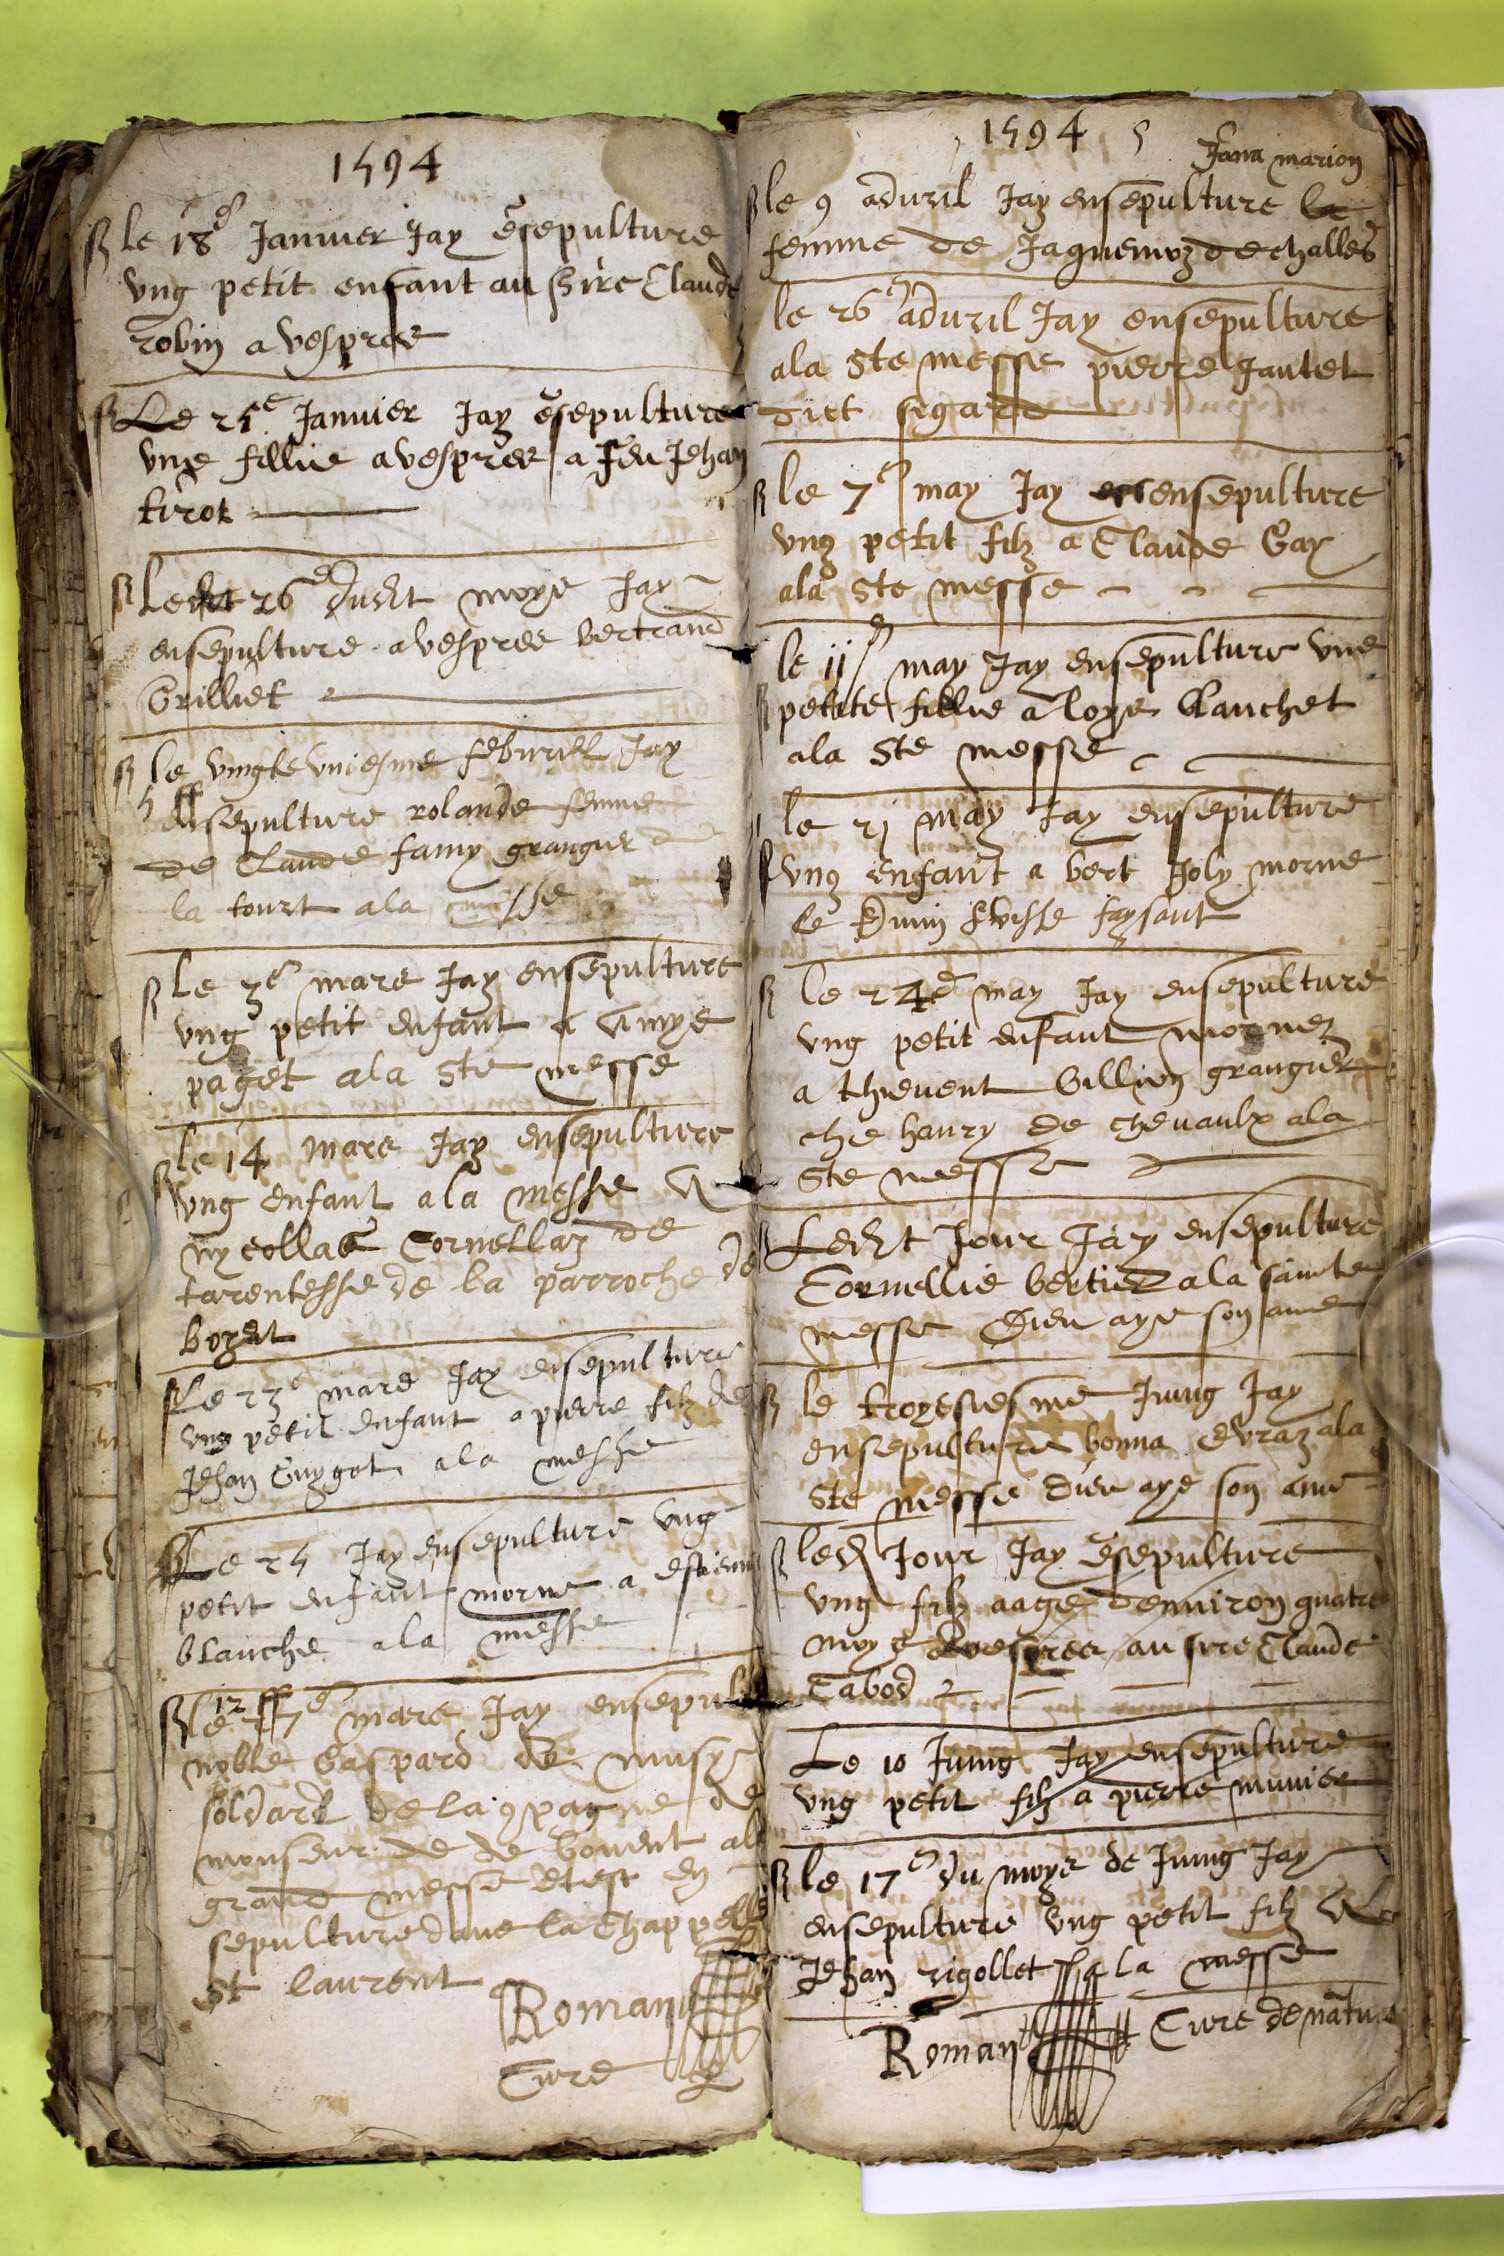 1594
le 18e Janvier Jay ēsepulture
ung petit enfant au sire Claude
robin a vespres
Le 25e Janvier Jay ēsepulture
une fillie a vespres a feu Jehan
tirot
26e dudit moys Jay
ensepulture a vespres bertrand
Grilliet
le vingte uniesme febvrier Jay
ensepulture rolande femme
de Claude famy grangier d
la tourt a la messe
le 3e mars Jay ensepulture
ung petit enfant a Amye
paget a la Ste messe
le 14 mars Jay ensepulture
ung enfant a la messe A
nycollas Cornellaz de
tarentesse de la parroche de
bozet
Le 23e mars Jay ensepulture
ung petit enfant a pierre filz de
Jehan Guygot a la messe
Le 25 Jay ensepulture ung
petit enfant morne a estienn
blanche a la messe
le 17e mars Jay ensepul
noble Gaspard de musy
soldard de la 9pagne de
monseur de de bouent a la
grand messe et est en
sepulture dans la Chappelle
St laurent
Roman
Cure
1594 5
Jana marion
le 9 apvril Jay ensepulture la
femme de Jaquemoz de challes
le 26e apvril Jay ensepulture
a la Ste messe pierre Jantet
dict segard
le 7e may Jay ensepulture
ung petit filz a Claude Gay
a la Ste messe
le 11e may Jay ensepulture une
petite fillie a loys blanchet
a la Ste messe
le 21 may Jay ensepulture
ung enfant a bert Joly morne
le divin office faysant
le 24e may Jay ensepulture
ung petit enfant mornez
a thievent Gillion grangier
che haury de chevaulx a la
Ste messe
Ledit Jour Jay ensepulture
Cornellie bertier a la sainte
messe Dieu aye son ame
le troyesiesme Juing Jay
ensepulture bonna evraz a la
Ste messe dieu aye son ame
led Jour Jay ēsepulture
ung filz aage denviron quatre
moys a vespres au sire Claude
Cabod
Le 10 Juing Jay ensepulture
ung petit filz a pierre munier
le 17e du moys de Juing Jay
ensepulture ung petit filz A
Jehan rigollet a la messe
Roman Cure de natu